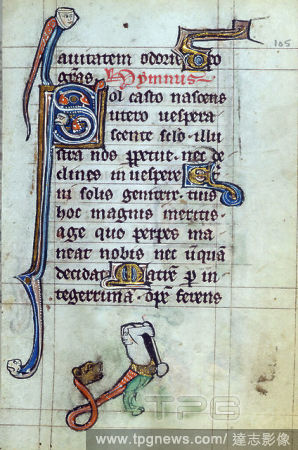 105
auitatem odoris Deo
gras Hymnus
Sol casto nascens
utero uespera
scente sclo illu
stra nos ppetue. nec de
clines in uespere
in solis genitrix tuis
hoc magnis meritis
age quo perpes ma
neat nobis nec
decidat p in
tegerrima. ope ferens
TPG
www.tpgnews.com / 達志影像